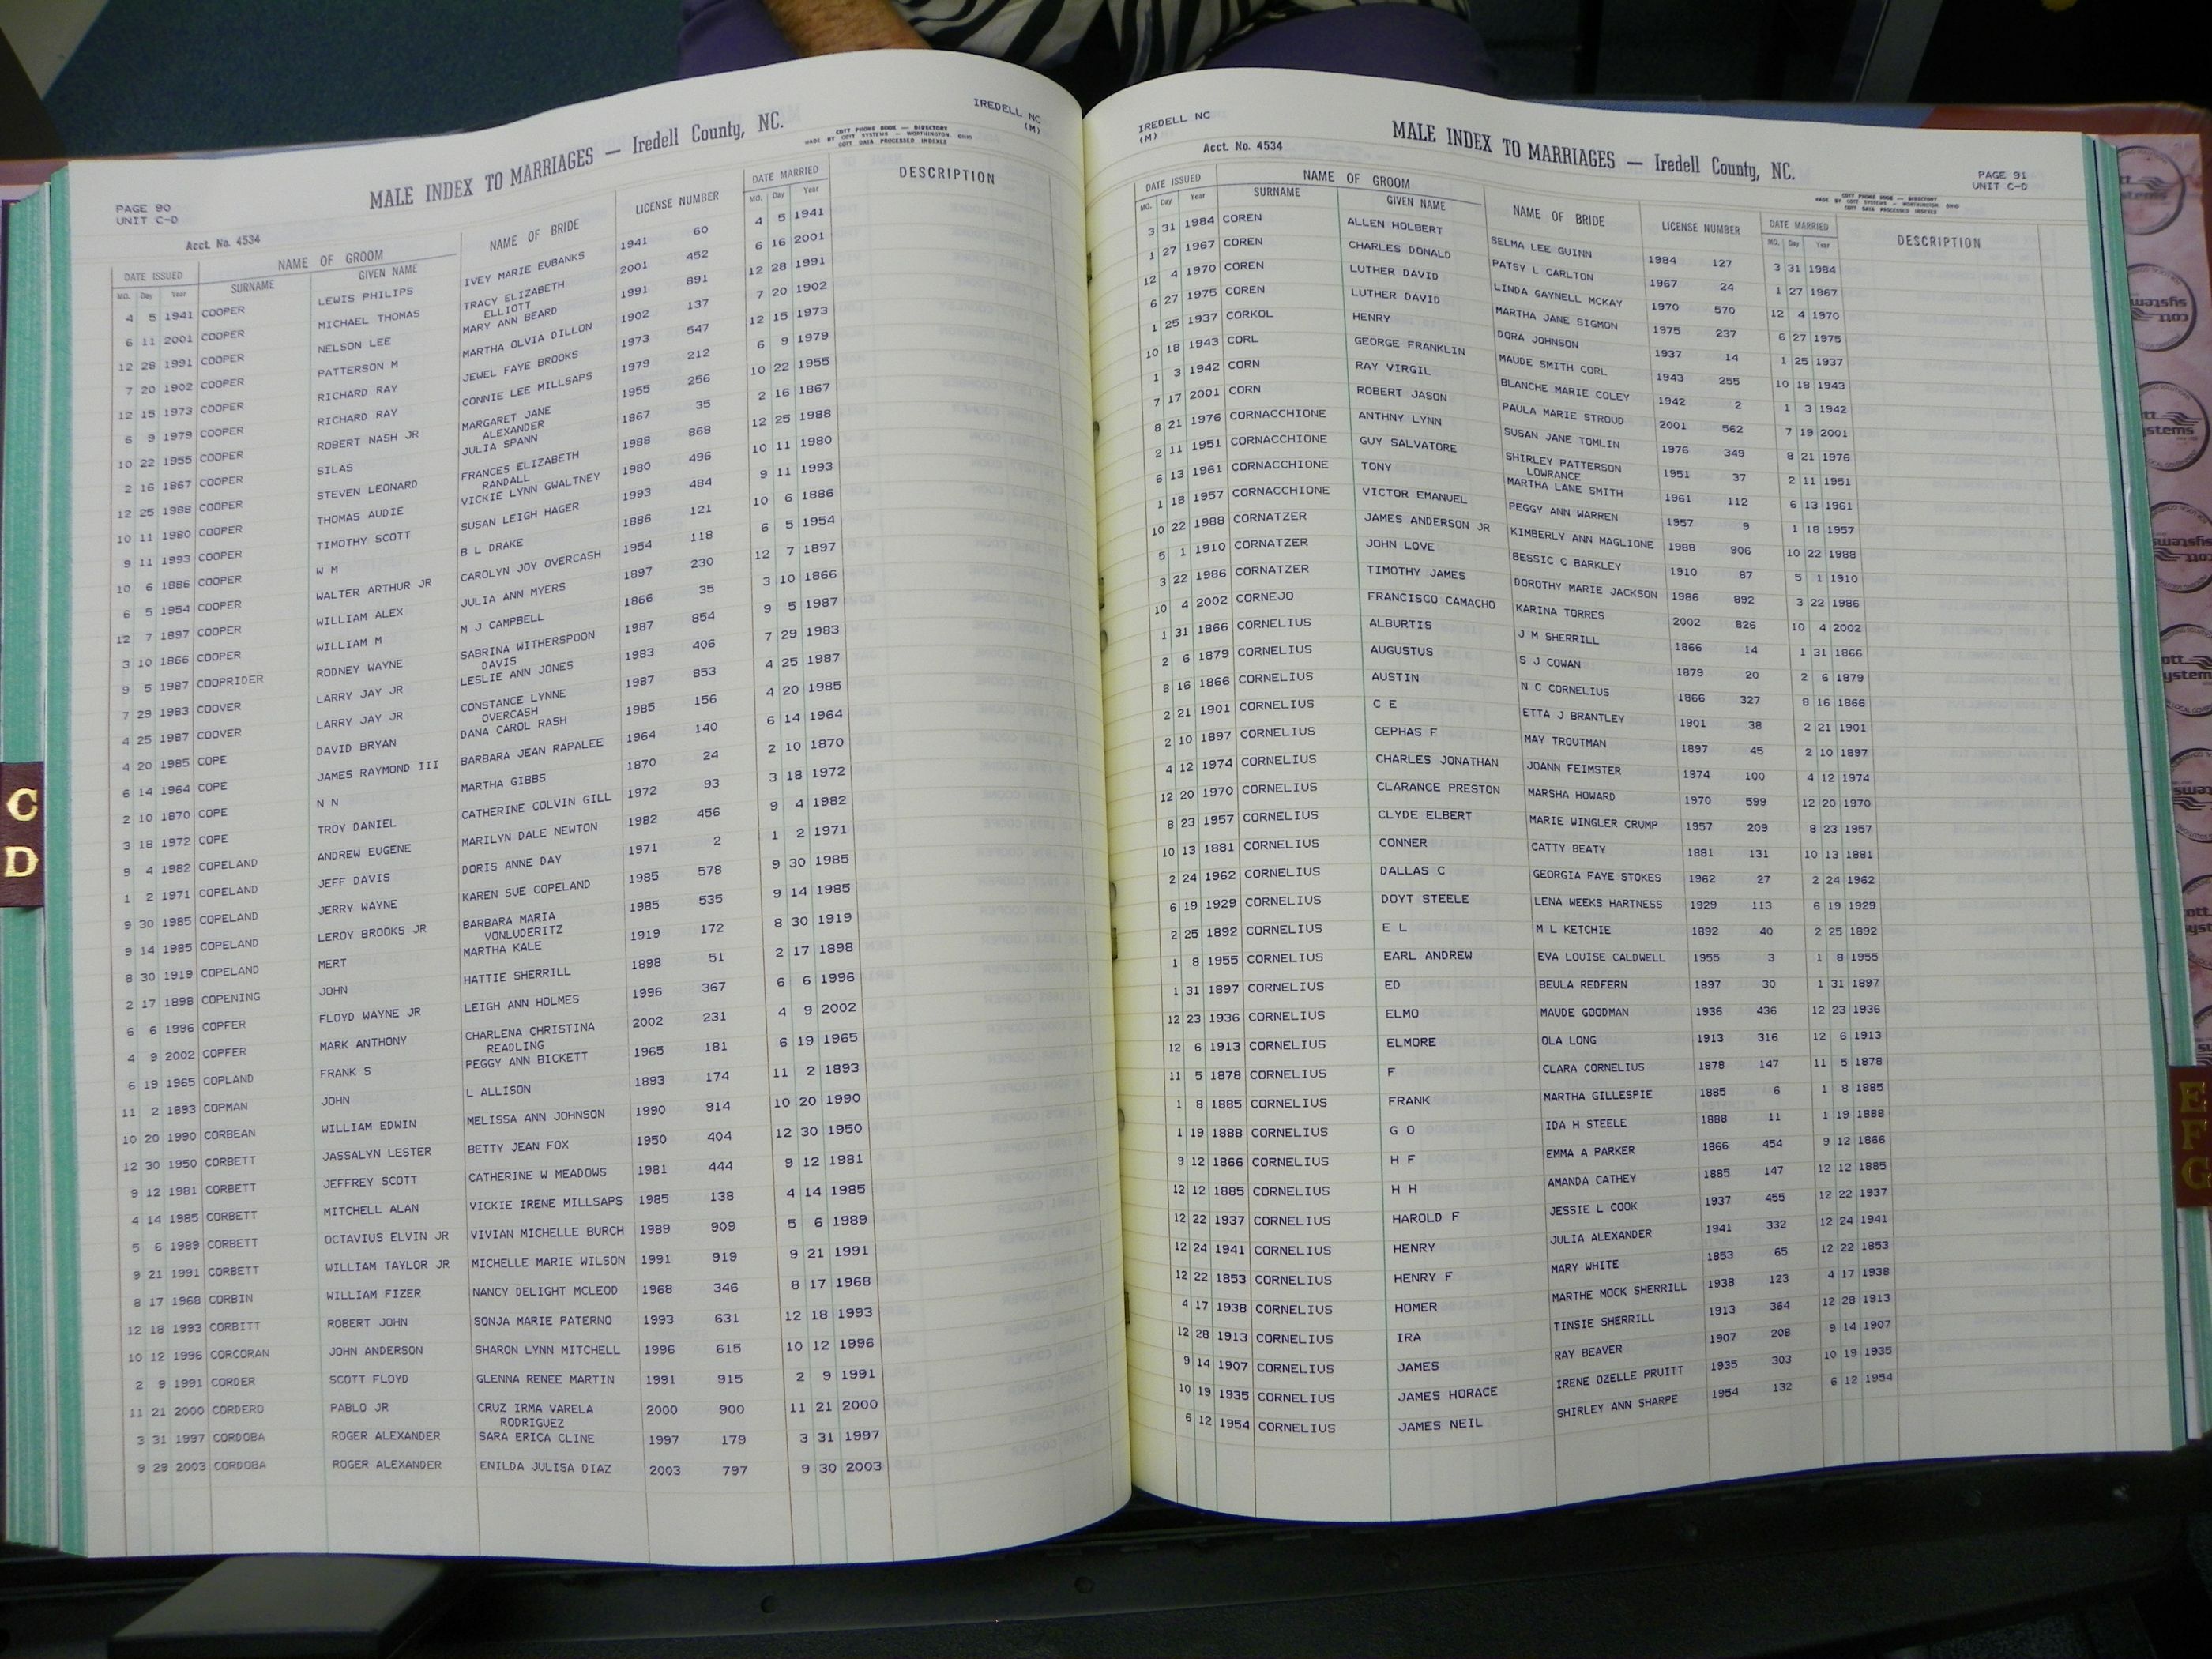 IREDELL NC
(M)
MALE INDEX TO MARRIAGES — Iredell County, NC.
COTT PHONE BOOK — DIRECTORY
MADE BY COTT SYSTEMS — WORTHINGTON, OHIO
COTT DATA PROCESSED INDEXES
PAGE 90
UNIT C-D
Acct. No. 4534
DATE ISSUED NAME OF GROOM NAME OF BRIDE LICENSE NUMBER DATE MARRIED DESCRIPTION
MO. Day Year SURNAME GIVEN NAME MO. Day Year
4 5 1941 COOPER LEWIS PHILIPS IVEY MARIE EUBANKS 1941 60 4 5 1941
6 11 2001 COOPER MICHAEL THOMAS TRACY ELIZABETH 2001 452 6 16 2001
ELLIOTT
12 28 1991 COOPER NELSON LEE MARY ANN BEARD 1991 891 12 28 1991
7 20 1902 COOPER PATTERSON M MARTHA OLVIA DILLON 1902 137 7 20 1902
12 15 1973 COOPER RICHARD RAY JEWEL FAYE BROOKS 1973 547 12 15 1973
6 9 1979 COOPER RICHARD RAY CONNIE LEE MILLSAPS 1979 212 6 9 1979
10 22 1955 COOPER ROBERT NASH JR MARGARET JANE 1955 256 10 22 1955
ALEXANDER
2 16 1867 COOPER SILAS JULIA SPANN 1867 35 2 16 1867
12 25 1988 COOPER STEVEN LEONARD FRANCES ELIZABETH 1988 868 12 25 1988
RANDALL
10 11 1980 COOPER THOMAS AUDIE VICKIE LYNN GWALTNEY 1980 496 10 11 1980
9 11 1993 COOPER TIMOTHY SCOTT SUSAN LEIGH HAGER 1993 484 9 11 1993
10 6 1886 COOPER W M B L DRAKE 1886 121 10 6 1886
6 5 1954 COOPER WALTER ARTHUR JR CAROLYN JOY OVERCASH 1954 118 6 5 1954
12 7 1897 COOPER WILLIAM ALEX JULIA ANN MYERS 1897 230 12 7 1897
3 10 1866 COOPER WILLIAM M M J CAMPBELL 1866 35 3 10 1866
9 5 1987 COOPRIDER RODNEY WAYNE SABRINA WITHERSPOON 1987 854 9 5 1987
DAVIS
7 29 1983 COOVER LARRY JAY JR LESLIE ANN JONES 1983 406 7 29 1983
4 25 1987 COOVER LARRY JAY JR CONSTANCE LYNNE 1987 853 4 25 1987
OVERCASH
4 20 1985 COPE DAVID BRYAN DANA CAROL RASH 1985 156 4 20 1985
6 14 1964 COPE JAMES RAYMOND III BARBARA JEAN RAPALEE 1964 140 6 14 1964
2 10 1870 COPE N N MARTHA GIBBS 1870 24 2 10 1870
3 18 1972 COPE TROY DANIEL CATHERINE COLVIN GILL 1972 93 3 18 1972
9 4 1982 COPELAND ANDREW EUGENE MARILYN DALE NEWTON 1982 456 9 4 1982
1 2 1971 COPELAND JEFF DAVIS DORIS ANNE DAY 1971 2 1 2 1971
9 30 1985 COPELAND JERRY WAYNE KAREN SUE COPELAND 1985 578 9 30 1985
9 14 1985 COPELAND LEROY BROOKS JR BARBARA MARIA 1985 535 9 14 1985
VONLUDERITZ
8 30 1919 COPELAND MERT MARTHA KALE 1919 172 8 30 1919
2 17 1898 COPENING JOHN HATTIE SHERRILL 1898 51 2 17 1898
6 6 1996 COPFER FLOYD WAYNE JR LEIGH ANN HOLMES 1996 367 6 6 1996
4 9 2002 COPFER MARK ANTHONY CHARLENA CHRISTINA 2002 231 4 9 2002
READLING
6 19 1965 COPLAND FRANK S PEGGY ANN BICKETT 1965 181 6 19 1965
11 2 1893 COPMAN JOHN L ALLISON 1893 174 11 2 1893
10 20 1990 CORBEAN WILLIAM EDWIN MELISSA ANN JOHNSON 1990 914 10 20 1990
12 30 1950 CORBETT JASSALYN LESTER BETTY JEAN FOX 1950 404 12 30 1950
9 12 1981 CORBETT JEFFREY SCOTT CATHERINE W MEADOWS 1981 444 9 12 1981
4 14 1985 CORBETT MITCHELL ALAN VICKIE IRENE MILLSAPS 1985 138 4 14 1985
5 6 1989 CORBETT OCTAVIUS ELVIN JR VIVIAN MICHELLE BURCH 1989 909 5 6 1989
9 21 1991 CORBETT WILLIAM TAYLOR JR MICHELLE MARIE WILSON 1991 919 9 21 1991
8 17 1968 CORBIN WILLIAM FIZER NANCY DELIGHT MCLEOD 1968 346 8 17 1968
12 18 1993 CORBITT ROBERT JOHN SONJA MARIE PATERNO 1993 631 12 18 1993
10 12 1996 CORCORAN JOHN ANDERSON SHARON LYNN MITCHELL 1996 615 10 12 1996
2 9 1991 CORDER SCOTT FLOYD GLENNA RENEE MARTIN 1991 915 2 9 1991
11 21 2000 CORDERO PABLO JR CRUZ IRMA VARELA 2000 900 11 21 2000
RODRIGUEZ
3 31 1997 CORDOBA ROGER ALEXANDER SARA ERICA CLINE 1997 179 3 31 1997
9 29 2003 CORDOBA ROGER ALEXANDER ENILDA JULISA DIAZ 2003 797 9 30 2003
IREDELL NC
(M)
Acct. No. 4534
MALE INDEX TO MARRIAGES — Iredell County, NC.
PAGE 91
UNIT C-D
COTT PHONE BOOK — DIRECTORY
MADE BY COTT SYSTEMS — WORTHINGTON, OHIO
COTT DATA PROCESSED INDEXES
DATE ISSUED NAME OF GROOM NAME OF BRIDE LICENSE NUMBER DATE MARRIED DESCRIPTION
MO. Day Year SURNAME GIVEN NAME MO. Day Year
3 31 1984 COREN ALLEN HOLBERT SELMA LEE GUINN 1984 127 3 31 1984
1 27 1967 COREN CHARLES DONALD PATSY L CARLTON 1967 24 1 27 1967
12 4 1970 COREN LUTHER DAVID LINDA GAYNELL MCKAY 1970 570 12 4 1970
6 27 1975 COREN LUTHER DAVID MARTHA JANE SIGMON 1975 237 6 27 1975
1 25 1937 CORKOL HENRY DORA JOHNSON 1937 14 1 25 1937
10 18 1943 CORL GEORGE FRANKLIN MAUDE SMITH CORL 1943 255 10 18 1943
1 3 1942 CORN RAY VIRGIL BLANCHE MARIE COLEY 1942 2 1 3 1942
7 17 2001 CORN ROBERT JASON PAULA MARIE STROUD 2001 562 7 19 2001
8 21 1976 CORNACCHIONE ANTHNY LYNN SUSAN JANE TOMLIN 1976 349 8 21 1976
2 11 1951 CORNACCHIONE GUY SALVATORE SHIRLEY PATTERSON 1951 37 2 11 1951
LOWRANCE
6 13 1961 CORNACCHIONE TONY MARTHA LANE SMITH 1961 112 6 13 1961
1 18 1957 CORNACCHIONE VICTOR EMANUEL PEGGY ANN WARREN 1957 9 1 18 1957
10 22 1988 CORNATZER JAMES ANDERSON JR KIMBERLY ANN MAGLIONE 1988 906 10 22 1988
5 1 1910 CORNATZER JOHN LOVE BESSIC C BARKLEY 1910 87 5 1 1910
3 22 1986 CORNATZER TIMOTHY JAMES DOROTHY MARIE JACKSON 1986 892 3 22 1986
10 4 2002 CORNEJO FRANCISCO CAMACHO KARINA TORRES 2002 826 10 4 2002
1 31 1866 CORNELIUS ALBURTIS J M SHERRILL 1866 14 1 31 1866
2 6 1879 CORNELIUS AUGUSTUS S J COWAN 1879 20 2 6 1879
8 16 1866 CORNELIUS AUSTIN N C CORNELIUS 1866 327 8 16 1866
2 21 1901 CORNELIUS C E ETTA J BRANTLEY 1901 38 2 21 1901
2 10 1897 CORNELIUS CEPHAS F MAY TROUTMAN 1897 45 2 10 1897
4 12 1974 CORNELIUS CHARLES JONATHAN JOANN FEIMSTER 1974 100 4 12 1974
12 20 1970 CORNELIUS CLARANCE PRESTON MARSHA HOWARD 1970 599 12 20 1970
8 23 1957 CORNELIUS CLYDE ELBERT MARIE WINGLER CRUMP 1957 209 8 23 1957
10 13 1881 CORNELIUS CONNER CATTY BEATY 1881 131 10 13 1881
2 24 1962 CORNELIUS DALLAS C GEORGIA FAYE STOKES 1962 27 2 24 1962
6 19 1929 CORNELIUS DOYT STEELE LENA WEEKS HARTNESS 1929 113 6 19 1929
2 25 1892 CORNELIUS E L M L KETCHIE 1892 40 2 25 1892
1 8 1955 CORNELIUS EARL ANDREW EVA LOUISE CALDWELL 1955 3 1 8 1955
1 31 1897 CORNELIUS ED BEULA REDFERN 1897 30 1 31 1897
12 23 1936 CORNELIUS ELMO MAUDE GOODMAN 1936 436 12 23 1936
12 6 1913 CORNELIUS ELMORE OLA LONG 1913 316 12 6 1913
11 5 1878 CORNELIUS F CLARA CORNELIUS 1878 147 11 5 1878
1 8 1885 CORNELIUS FRANK MARTHA GILLESPIE 1885 6 1 8 1885
1 19 1888 CORNELIUS G O IDA H STEELE 1888 11 1 19 1888
9 12 1866 CORNELIUS H F EMMA A PARKER 1866 454 9 12 1866
12 12 1885 CORNELIUS H H AMANDA CATHEY 1885 147 12 12 1885
12 22 1937 CORNELIUS HAROLD F JESSIE L COOK 1937 455 12 22 1937
12 24 1941 CORNELIUS HENRY JULIA ALEXANDER 1941 332 12 24 1941
12 22 1853 CORNELIUS HENRY F MARY WHITE 1853 65 12 22 1853
4 17 1938 CORNELIUS HOMER MARTHE MOCK SHERRILL 1938 123 4 17 1938
12 28 1913 CORNELIUS IRA TINSIE SHERRILL 1913 364 12 28 1913
9 14 1907 CORNELIUS JAMES RAY BEAVER 1907 208 9 14 1907
10 19 1935 CORNELIUS JAMES HORACE IRENE OZELLE PRUITT 1935 303 10 19 1935
6 12 1954 CORNELIUS JAMES NEIL SHIRLEY ANN SHARPE 1954 132 6 12 1954
C
D
E
F
G